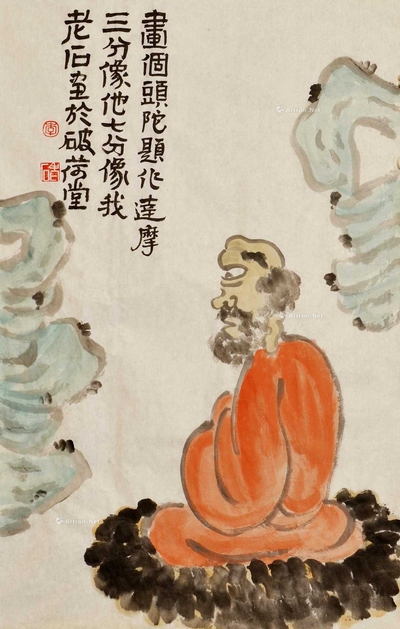 畫個頭陀題作達摩
三分像他七分像我
老石畫於破荷堂